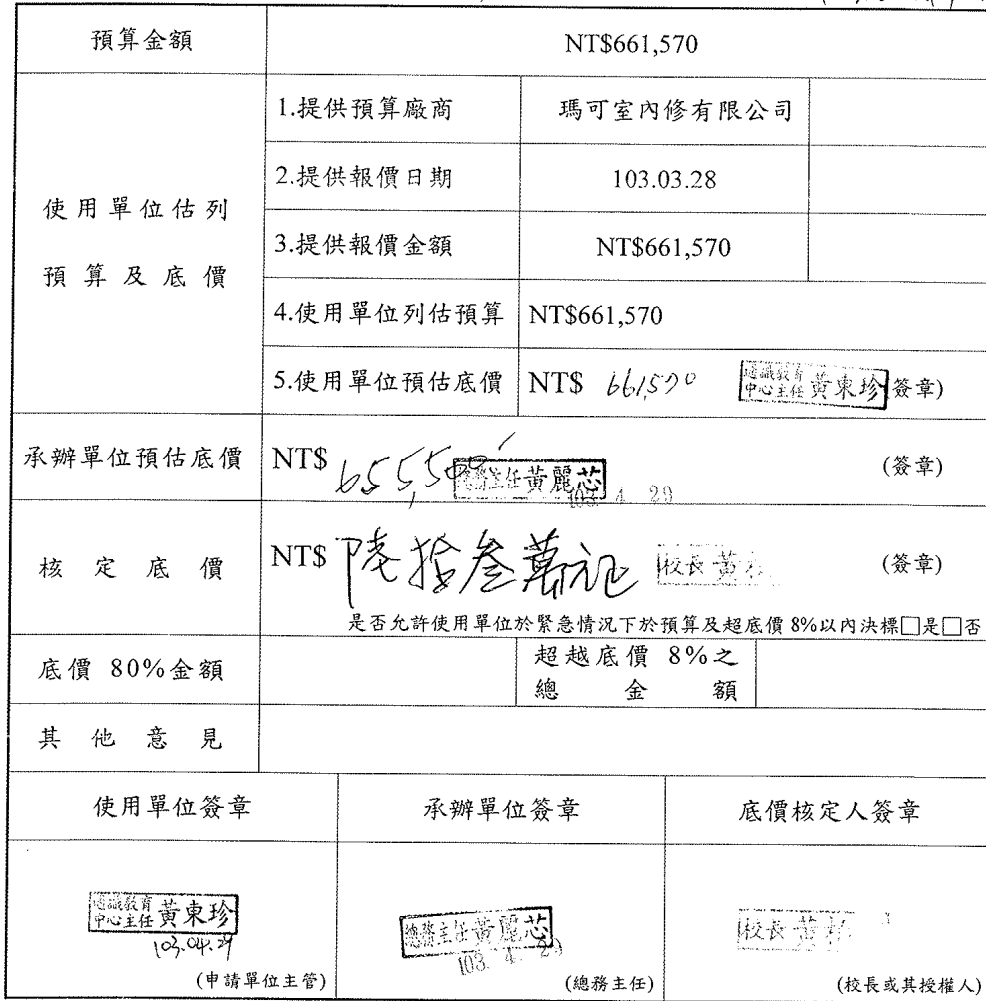 預算金額 NT$661,570
使用單位估列
預算及底價
1.提供預算廠商 瑪可室內修有限公司
2.提供報價日期 103.03.28
3.提供報價金額 NT$661,570
4.使用單位列估預算 NT$661,570
5.使用單位預估底價 NT$ 661,570 通識教育中心主任 黃東珍 簽章)
承辦單位預估底價 NT$ 655,500 總務主任黃麗芯 103. 4. 29 (簽章)
核定底價 NT$ 陸拾叁萬元 校長 黃 (簽章)
是否允許使用單位於緊急情況下於預算及超底價 8%以內決標□是□否
底價 80%金額
超越底價 8%之
總金額
其他意見
使用單位簽章 承辦單位簽章 底價核定人簽章
通識教育中心主任 黃東珍
103.04.29
(申請單位主管)
總務主任黃麗芯
103. 4. 29
(總務主任)
校長 黃
(校長或其授權人)